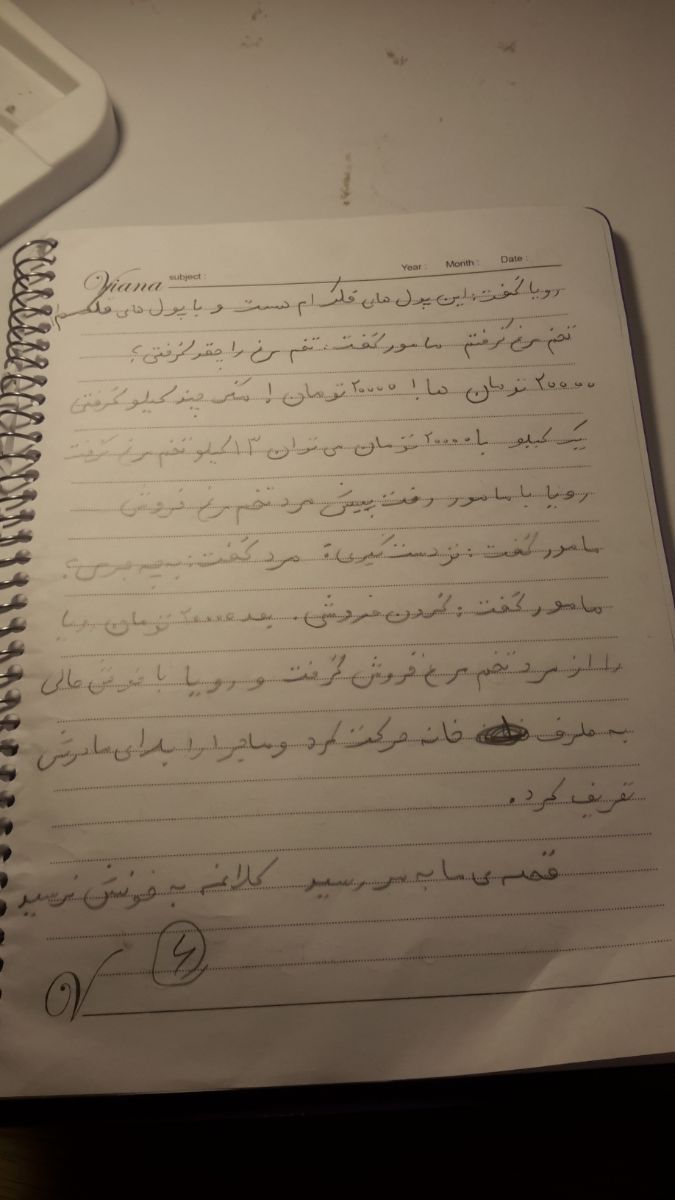 Viana subject : Year : Month : Date :
رویا گفت: این پول های قلکم ام هست و با پول های قلکم
تخم مرغ گرفتم مامور گفت: تخم مرغ را چقدر گرفتی؟
۲۰۰۰۰ تومان ها! ۲۰۰۰۰ تومان! مگر چند کیلو گرفتی
یک کیلو با ۲۰۰۰۰ تومان می توان ۱۳ کیلو تخم مرغ گرفت
رویا با مامور رفت پیش مرد تخم مرغ فروش
مامور گفت: تو دست گیری؟ مرد گفت: به چه جرمی؟
مامور گفت: گرون فروشی. بعد ۲۰۰۰۰ تومان رویا
را از مرد تخم مرغ فروش گرفت و رویا با خوش حالی
به طرف خانه حرکت کرد و ماجرا را برای مادرش
تعریف کرد.
قصه ی ما به سر رسید کلاغه به خونش نرسید